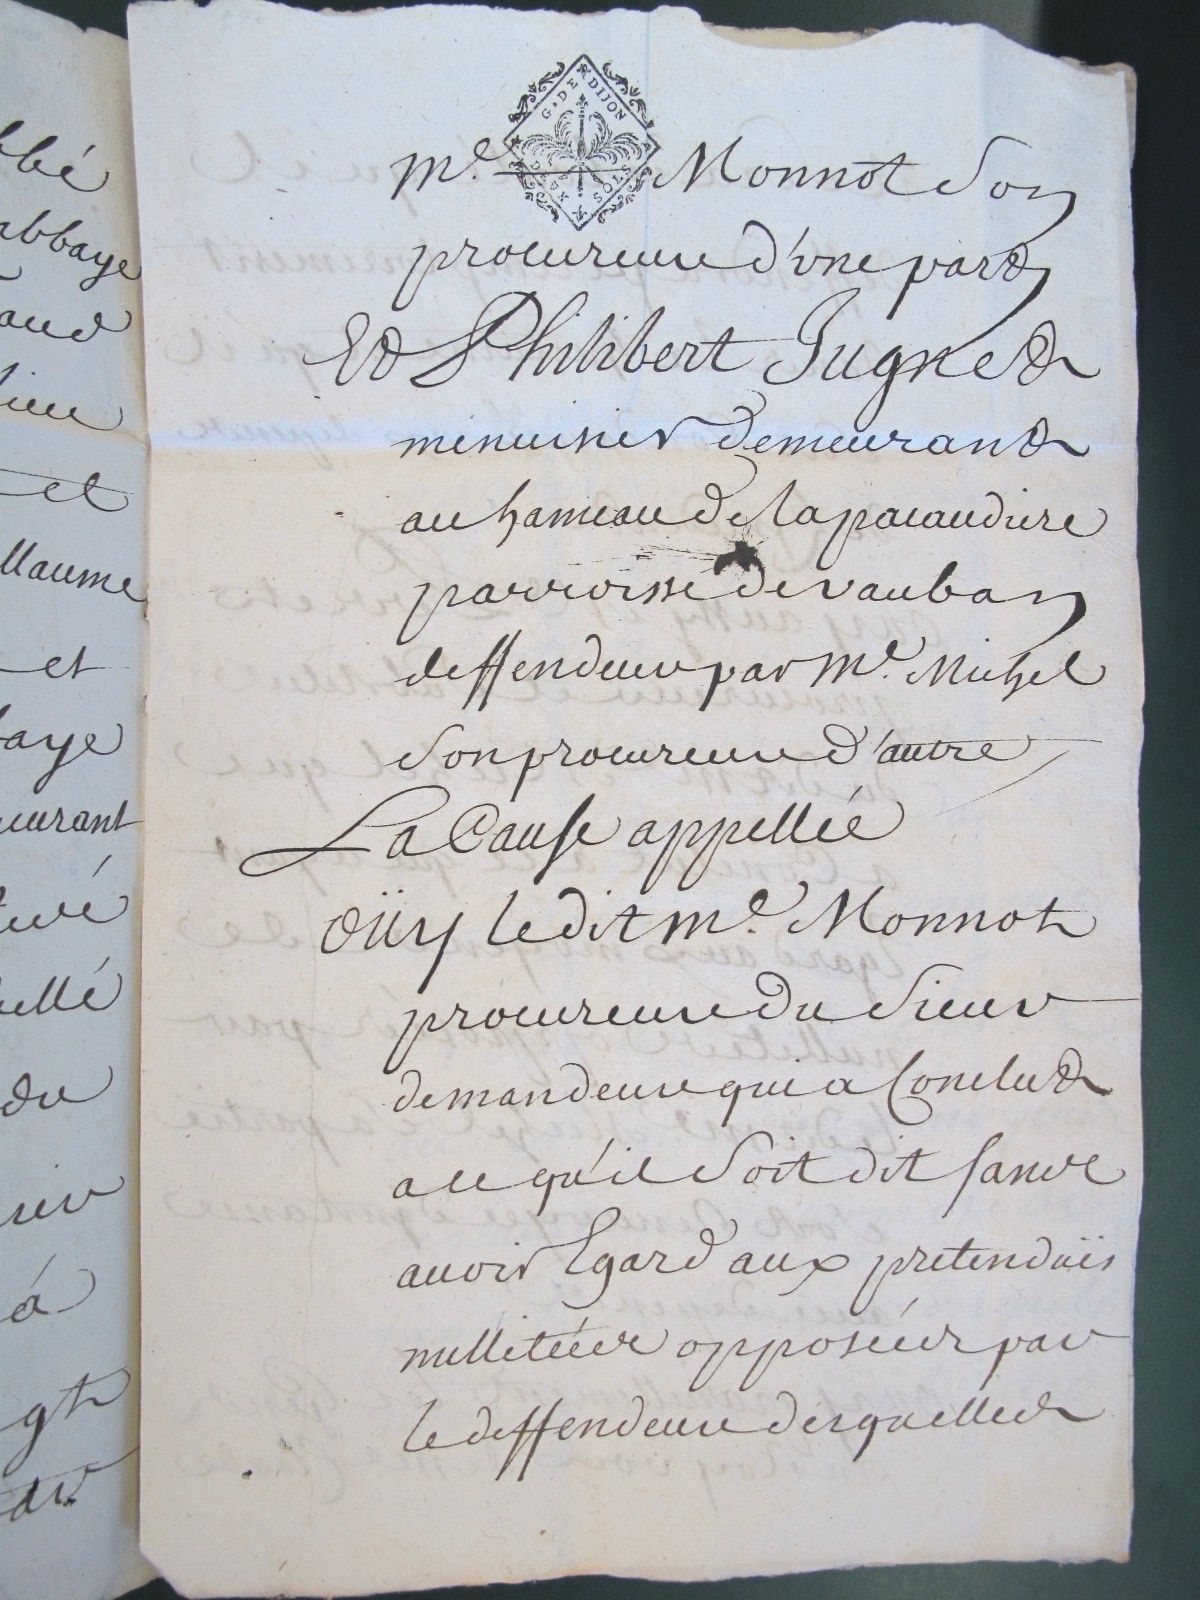 bbé
abbaye
aud
lieu
et
llaume
et
baye
eurant
ellé
du
à
G. DE DIJON
DEUX SOLS
Me. Monnot son
procureur d'une part
Et Philibert Jugnet
menuisier demeurant
au hameau de la pacaudiere
parroisse de vauban
deffendeur par Me. Michel
son procureur d'autre
La Cause appellée
oüy ledit Me. Monnot
procureur du sieur
demandeur qui a Conclud
a ce qu'il soit dit sans
avoir Egard aux pretenduës
nullitées opposées par
le deffendeur desquelles